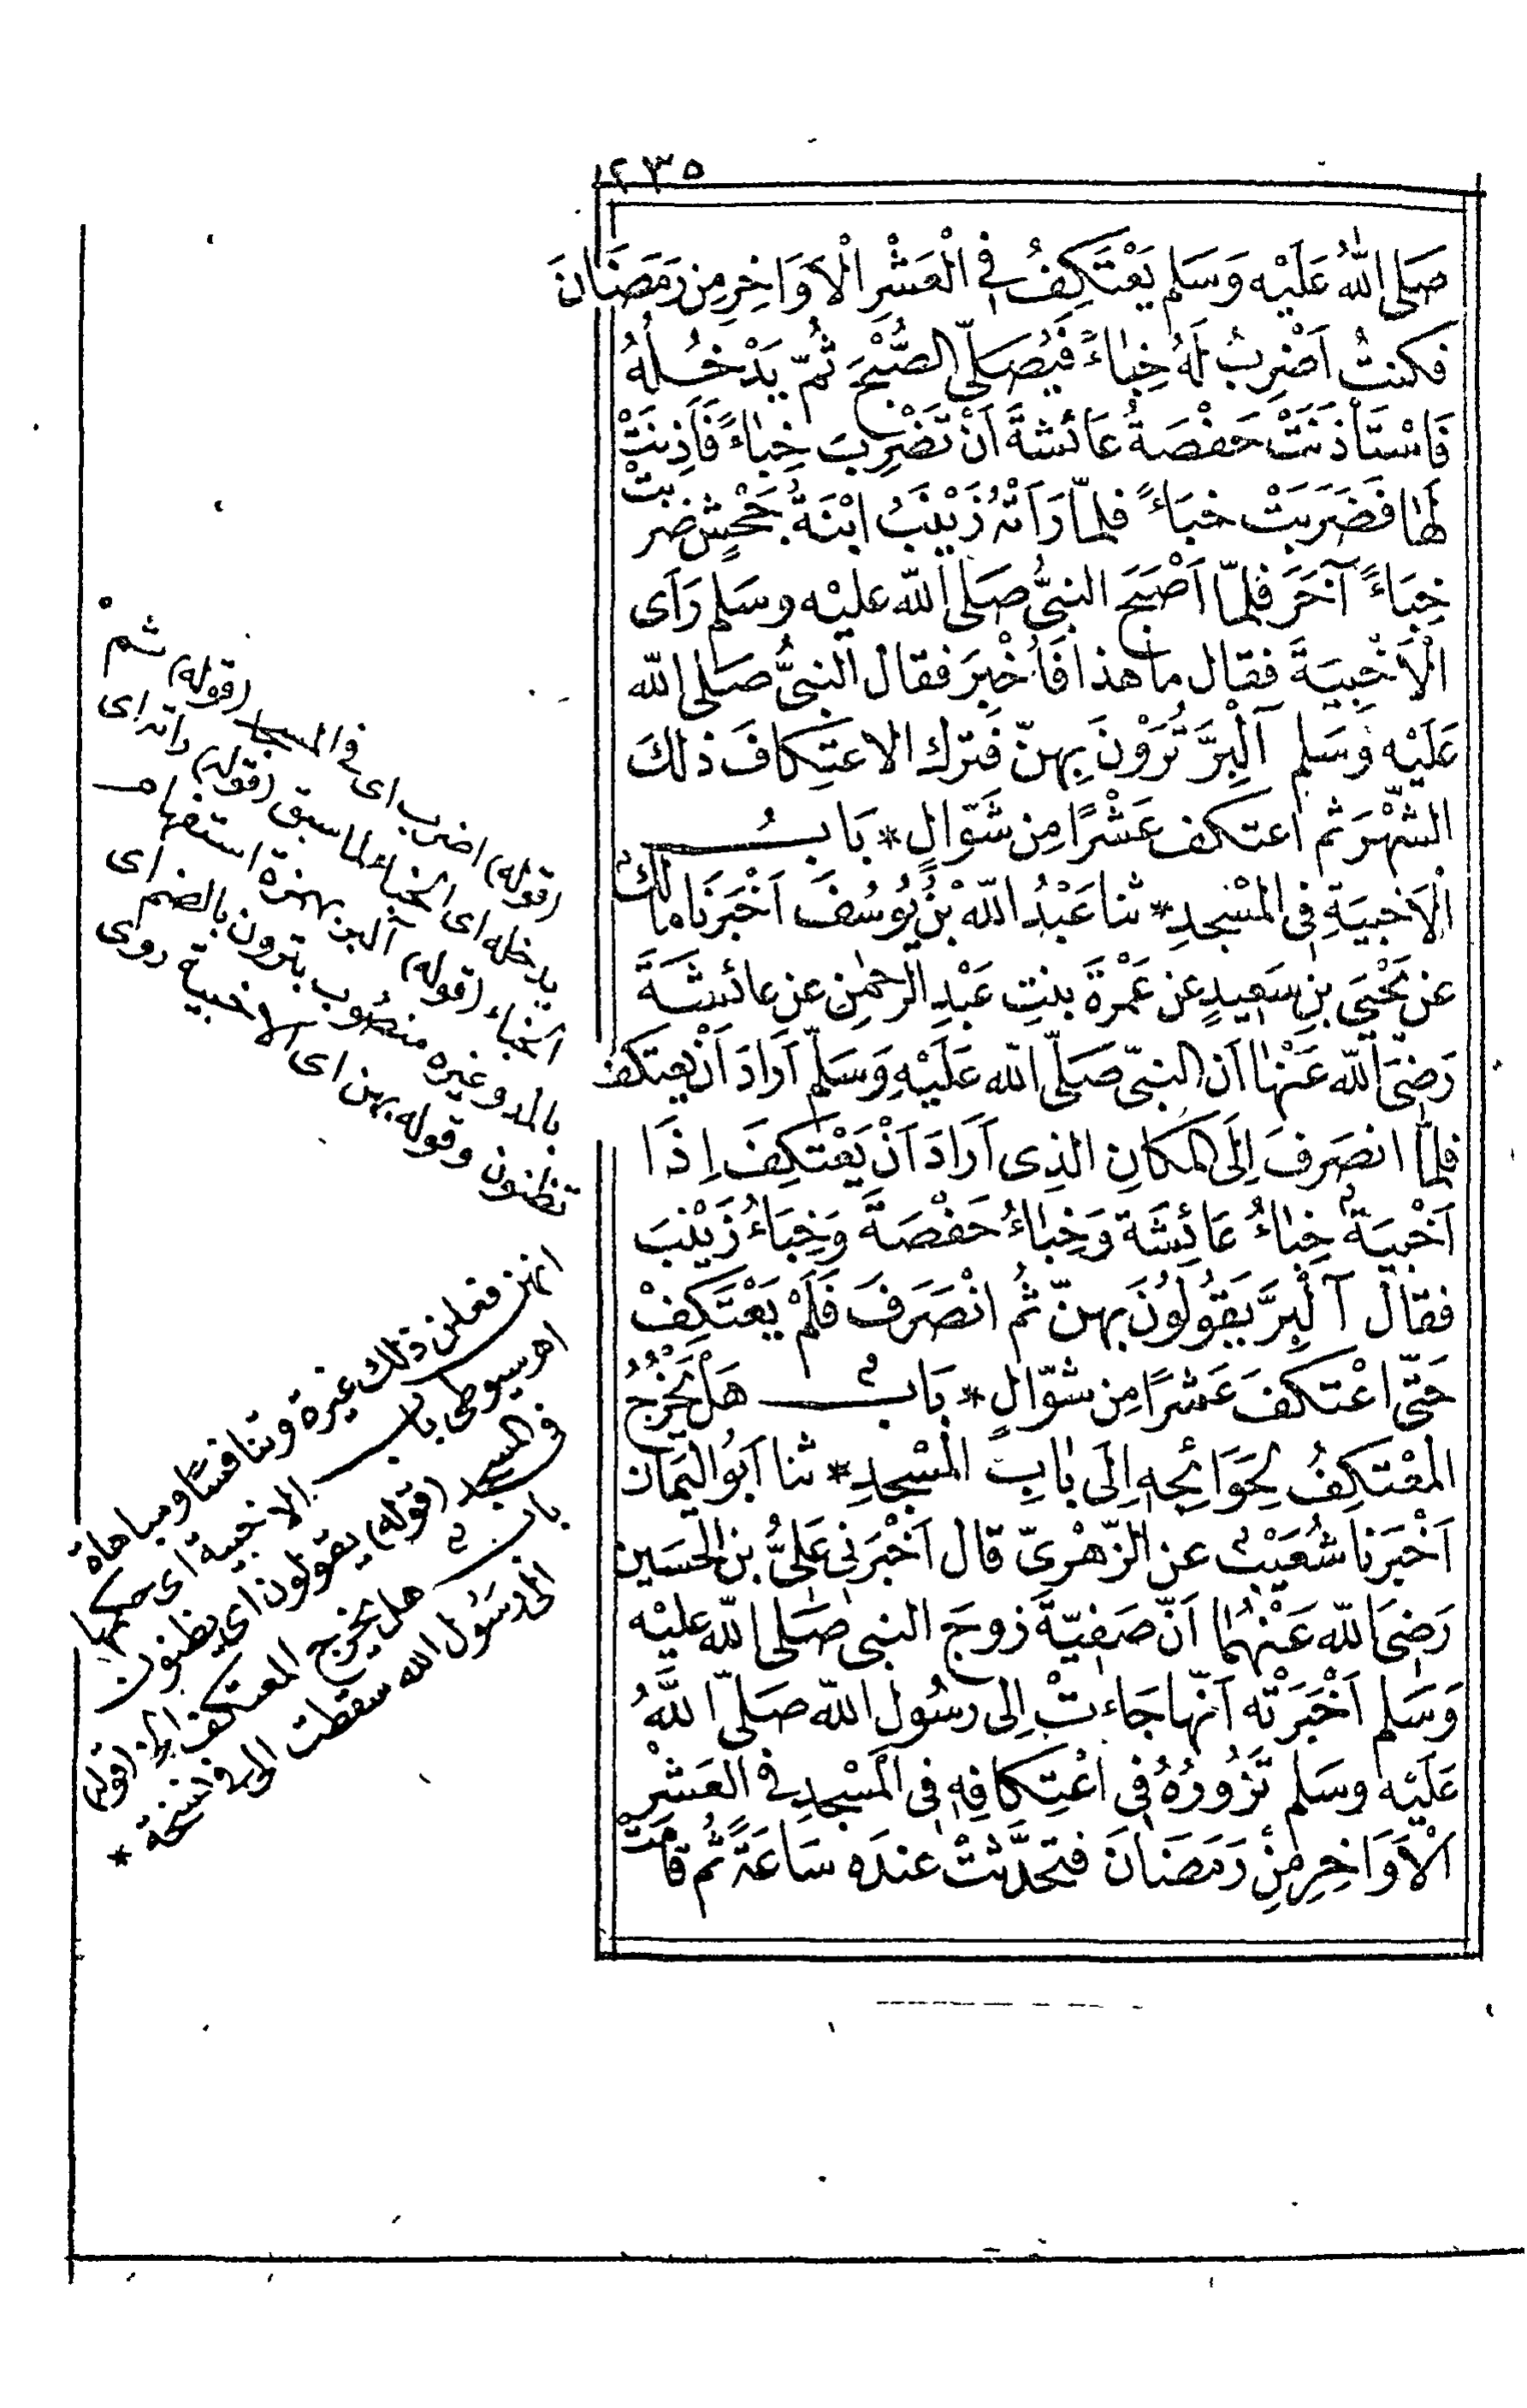 ٢٣٥
صَلى اللهُ عَلَيْه وَسَلم يَعْتَكِفُ فِي الْعَشْرِ الْأَوَاخِرِ مِن رَمَضَانَ
فكنتُ اَضْرِبُ لَهُ خِبَاءً فَيُصَلّى الصُّبْحَ ثُمّ يَدْخُلُهُ
فَاسْتَأْذَنَتْ حَفْصَةُ عَائشَةَ اَنْ تَضْرِبَ خِبَاءً فَأَذِنَتْ
لَهَا فَضَرَبَتْ خِبَاءً فلمّا رَأَتْهُ زَيْنَبُ ابْنَةُ جَحْشٍ ضربتْ
خِبَاءً آخَرَ فلمّا اَصْبَحَ النبىُّ صَلى اللّه عليْه وسَلم رَأى
الْاَخْبِيَةَ فقال ما هذا فَأُخْبِرَ فقال النبىُّ صَلى اللّه
عَلَيْه وَسَلم آلْبِرَّ تُرَوْنَ بِهنّ فَترك الاعتِكافَ ذلكَ
الشّهْرَ ثم اعتكف عَشْرًا مِن شَوّالٍ * بَابُ
الْاَخبِيَةِ فِى المْسْجِدِ * ثنا عَبْدُ اللّه بْنُ يُوسُفَ اَخْبَرَنَا مالكٌ
عن يَحْيَى بنِ سَعِيدٍ عن عَمْرَةَ بنتِ عَبْدِ الرحمٰنِ عن عائشَةَ
رَضِىَ اللّه عَنْهَا ان النبىّ صَلّى اللّه عَلَيْهِ وَسَلّم اَرَادَ اَنْ يعتكف
فلمّا انصَرفَ اِلَى المَكَانِ الذِى اَرَادَ اَنْ يَعْتَكِفَ اِذَا
اَخْبِيَةٌ خِبَاءُ عَائِشَة وَخِبَاءُ حَفْصَةَ وَخِبَاءُ زَيْنَبَ
فقال آلْبِرَّ يَقُولُونَ بهنّ ثُم انْصَرَفَ فَلَمْ يَعْتَكِفْ
حَتّى اعْتكفَ عَشرًا مِن شوّالٍ * بَابٌ هَلْ يَخْرُجُ
المعْتكِفُ لِحَوَائجِه اِلَى بَابِ المْسْجِدِ * ثنا اَبُو اليَمان
اَخْبَرَنا شُعَيْبٌ عن الزّهْرىّ قال اَخْبَرَنى عَلىُّ بن الحسَين
رَضِىَ اللّه عَنْهُمَا اَنّ صَفِيّةَ زوجَ النبى صَلى اللّه عليْه
وَسَلم اَخْبَرَتْه اَنّها جَاءتْ اِلى رسُولِ اللّه صَلّى اللَّهُ
عَلَيْه وسَلم تَزُورُهُ فِى اعْتِكافِهِ فِى المَسْجِدِ فى العَشْرِ
الْأوَاخِرِ مِنْ رَمَضَانَ فتحدَّثتْ عندَه سَاعَةً ثُم قامَتْ
(قوله) اضرب اى فى المسجد (قوله) ثم
يدخله اى الخباء لما سبق (قوله) راته اى
الخباء (قوله) آلبر بهمزة استفهام
بالمد وغيره منصُوب بترون بالضم اى
تظنون وقوله بهن اى الاخبية روى
انهن فعلن ذلك غيرة وتنافسًا ومباهاة
اهـ سيوطى باب الاخبية اى حكمها
فى المسجد (قوله) يقولون اى يظنون
باب هل يخرج المعتكف الخ (قوله)
الى رسُول الله سقطت الى فى نسخة *